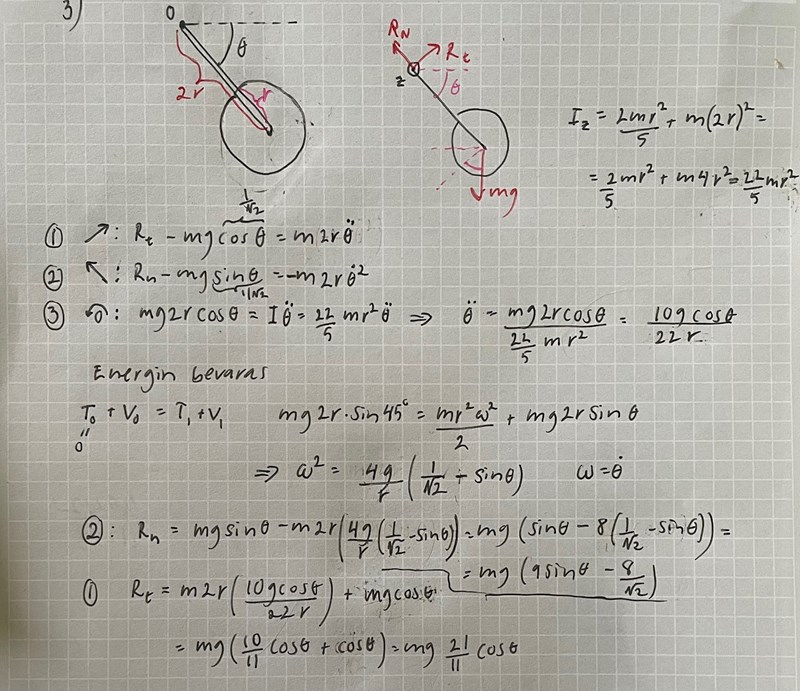 3)
O
θ
2r
r
R_N
R_t
z
θ
mg
I_z = 2mr²/5 + m(2r)² =
= 2/5 mr² + m4r² = 22/5 mr²
1/√2
① ↗: R_t - mg cos θ = m2rθ̈
② ↖: R_n - mg sin θ = -m2rθ̇²
1/√2
③ ↶: mg2r cos θ = Iθ̈ = 22/5 mr² θ̈ ⇒ θ̈ = mg2r cos θ / (22/5 mr²) = 10g cos θ / 22r
Energin bevaras
T₀ + V₀ = T₁ + V₁ mg2r · sin 45° = mr²ω²/2 + mg2r sin θ
"
0
⇒ ω² = 4g/r (1/√2 - sin θ) ω = θ̇
②: R_n = mg sin θ - m2r(4g/r (1/√2 - sin θ)) = mg (sin θ - 8(1/√2 - sin θ)) =
= mg (9 sin θ - 8/√2)
① R_t = m2r(10g cos θ / 22r) + mg cos θ
= mg(10/11 cos θ + cos θ) = mg 21/11 cos θ